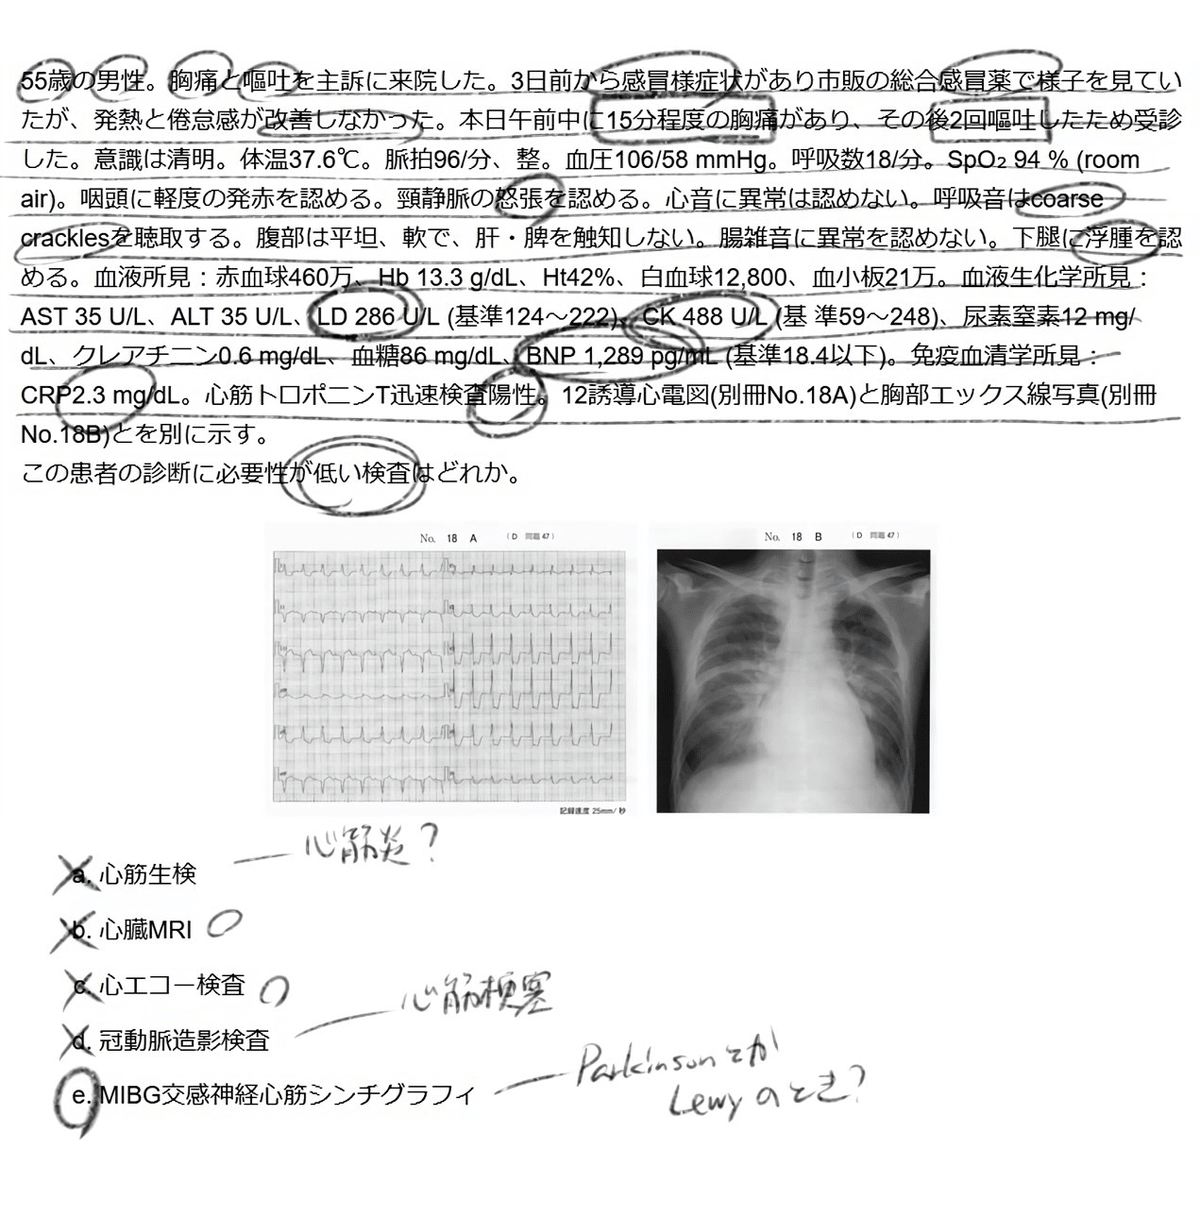 55歳の男性。胸痛と嘔吐を主訴に来院した。3日前から感冒様症状があり市販の総合感冒薬で様子を見てい
たが、発熱と倦怠感が改善しなかった。本日午前中に15分程度の胸痛があり、その後2回嘔吐したため受診
した。意識は清明。体温37.6℃。脈拍96/分、整。血圧106/58 mmHg。呼吸数18/分。SpO₂ 94 % (room
air)。咽頭に軽度の発赤を認める。頸静脈の怒張を認める。心音に異常は認めない。呼吸音はcoarse
cracklesを聴取する。腹部は平坦、軟で、肝・脾を触知しない。腸雑音に異常を認めない。下腿に浮腫を認
める。血液所見：赤血球460万、Hb 13.3 g/dL、Ht42%、白血球12,800、血小板21万。血液生化学所見：
AST 35 U/L、ALT 35 U/L、LD 286 U/L (基準124～222)、CK 488 U/L (基 準59～248)、尿素窒素12 mg/
dL、クレアチニン0.6 mg/dL、血糖86 mg/dL、BNP 1,289 pg/mL (基準18.4以下)。免疫血清学所見：
CRP2.3 mg/dL。心筋トロポニンT迅速検査陽性。12誘導心電図(別冊No.18A)と胸部エックス線写真(別冊
No.18B)とを別に示す。
この患者の診断に必要性が低い検査はどれか。
No. 18 A (D 問題 47)
No. 18 B (D 問題 47)
記録速度 25mm/秒
心筋炎?
a. 心筋生検
b. 心臓MRI
c. 心エコー検査
心筋梗塞
d. 冠動脈造影検査
e. MIBG交感神経心筋シンチグラフィ
Parkinsonとか
Lewyのとき?